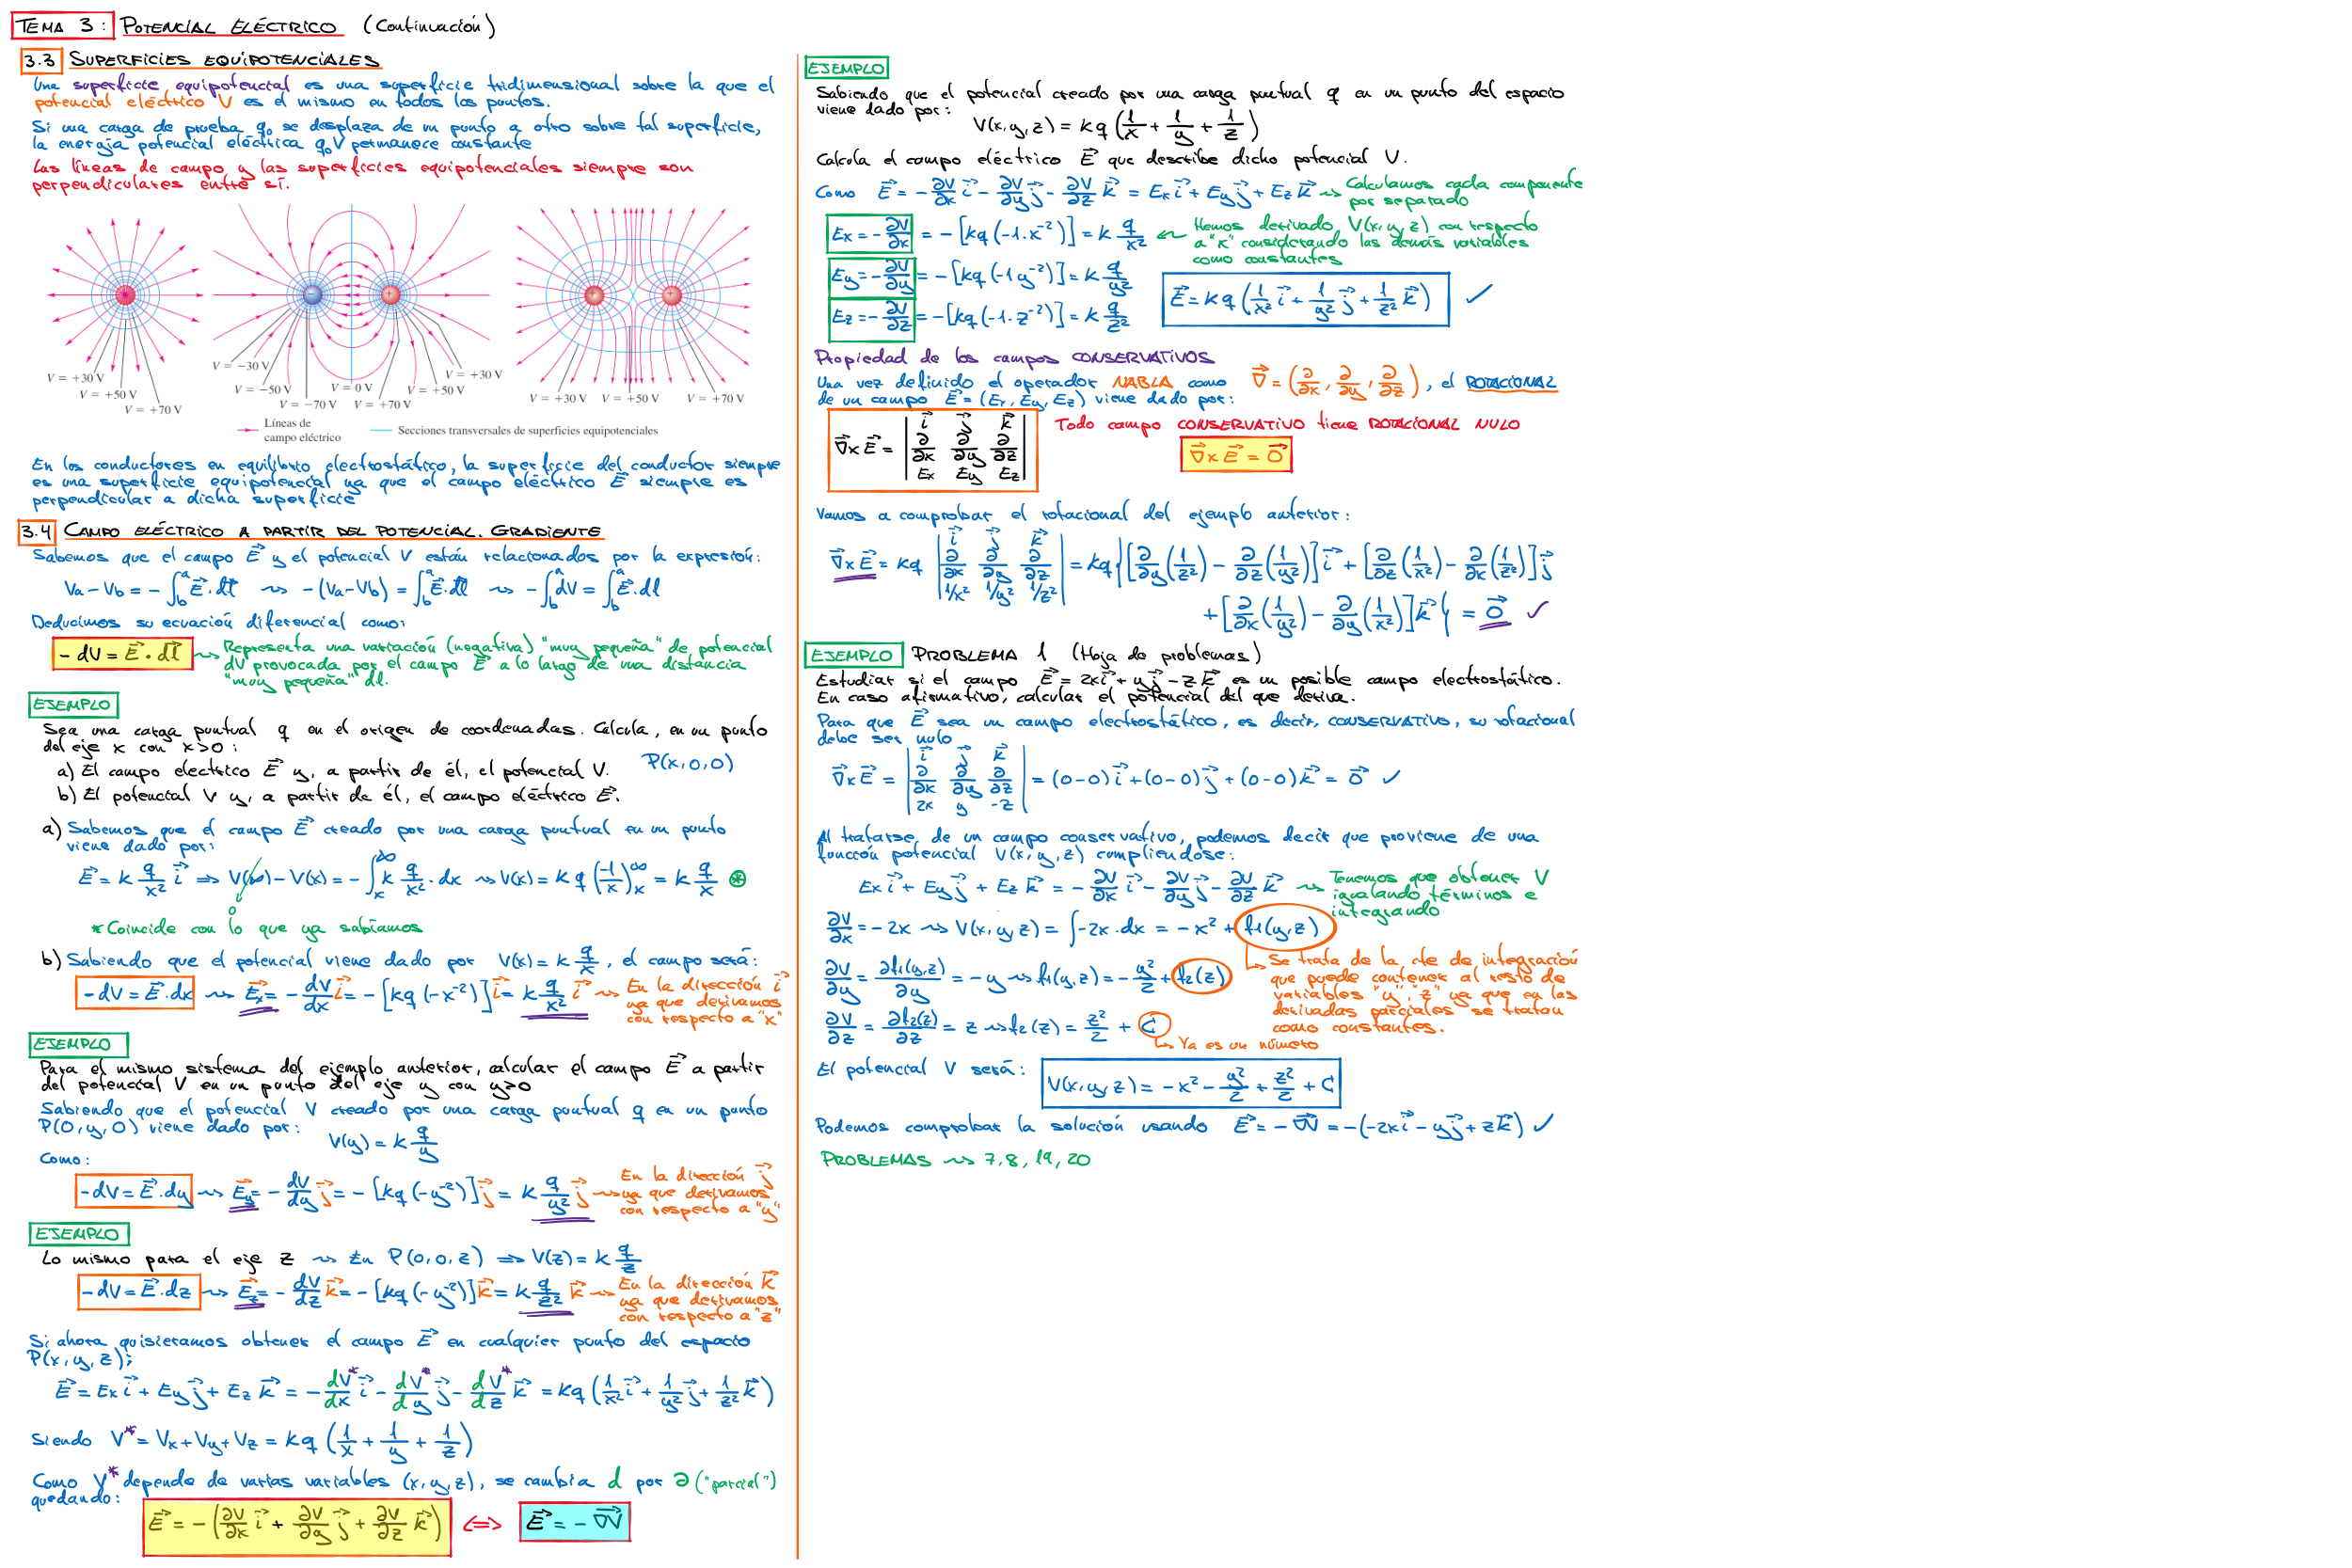 TEMA 3: POTENCIAL ELÉCTRICO (Continuación)
3.3 SUPERFICIES EQUIPOTENCIALES
Una superficie equipotencial es una superficie tridimensional sobre la que el
potencial eléctrico V es el mismo en todos los puntos.
Si una carga de prueba q₀ se desplaza de un punto a otro sobre tal superficie,
la energía potencial eléctrica q₀V permanece constante
Las líneas de campo y las superficies equipotenciales siempre son
perpendiculares entre sí.
V = +30 V
V = +50 V
V = +70 V
V = −30 V
V = −50 V
V = −70 V
V = 0 V
V = +70 V
V = +50 V
V = +30 V
V = +30 V V = +50 V V = +70 V
Líneas de
campo eléctrico
Secciones transversales de superficies equipotenciales
En los conductores en equilibrio electrostático, la superficie del conductor siempre
es una superficie equipotencial ya que el campo eléctrico E⃗ siempre es
perpendicular a dicha superficie
3.4 CAMPO ELÉCTRICO A PARTIR DEL POTENCIAL. GRADIENTE
Sabemos que el campo E⃗ y el potencial V están relacionados por la expresión:
Va - Vb = - ∫_b^a E⃗ · dl⃗ ⇝ -(Va-Vb) = ∫_b^a E⃗·dl⃗ ⇝ -∫_b^a dV = ∫_b^a E⃗·dl
Deducimos su ecuación diferencial como:
- dV = E⃗ · dl⃗ ⇝ Representa una variación (negativa) "muy pequeña" de potencial
dV provocada por el campo E⃗ a lo largo de una distancia
"muy pequeña" dl.
EJEMPLO
Sea una carga puntual q en el origen de coordenadas. Calcula, en un punto
del eje x con x>0:
a) El campo electrico E⃗ y, a partir de él, el potencial V. P(x,0,0)
b) El potencial V y, a partir de él, el campo eléctrico E⃗.
a) Sabemos que el campo E⃗ creado por una carga puntual en un punto
viene dado por:
E⃗ = k q/x² i⃗ ⇒ V(∞) - V(x) = - ∫_x^∞ k q/x² · dx ⇝ V(x) = kq (-1/x)_x^∞ = k q/x *
0
* Coincide con lo que ya sabíamos
b) Sabiendo que el potencial viene dado por V(x) = k q/x, el campo será:
- dV = E⃗·dx ⇝ E⃗x = - dV/dx i⃗ = - [kq(-x⁻²)] i⃗ = k q/x² i⃗ ⇝ En la dirección i⃗
ya que derivamos
con respecto a "x"
EJEMPLO
Para el mismo sistema del ejemplo anterior, calcular el campo E⃗ a partir
del potencial V en un punto del eje y con y>0
Sabiendo que el potencial V creado por una carga puntual q en un punto
P(0,y,0) viene dado por: V(y) = k q/y
Como:
- dV = E⃗·dy ⇝ E⃗y = - dV/dy j⃗ = - [kq(-y⁻²)] j⃗ = k q/y² j⃗ ⇝ En la dirección j⃗
ya que derivamos
con respecto a "y"
EJEMPLO
Lo mismo para el eje z ⇝ En P(0,0,z) ⇒ V(z) = k q/z
- dV = E⃗·dz ⇝ E⃗z = - dV/dz k⃗ = - [kq(-y⁻²)] k⃗ = k q/z² k⃗ ⇝ En la dirección k⃗
ya que derivamos
con respecto a "z"
Si ahora quisieramos obtener el campo E⃗ en cualquier punto del espacio
P(x,y,z):
E⃗ = Ex i⃗ + Ey j⃗ + Ez k⃗ = - dV*/dx i⃗ - dV*/dy j⃗ - dV*/dz k⃗ = kq (1/x² i⃗ + 1/y² j⃗ + 1/z² k⃗)
Siendo V* = Vx+Vy+Vz = kq (1/x + 1/y + 1/z)
Como V* depende de varias variables (x,y,z), se cambia d por ∂ ("parcial")
quedando:
E⃗ = - (∂V/∂x i⃗ + ∂V/∂y j⃗ + ∂V/∂z k⃗) ⟺ E⃗ = - ∇⃗V
EJEMPLO
Sabiendo que el potencial creado por una carga puntual q en un punto del espacio
viene dado por:
V(x,y,z) = kq (1/x + 1/y + 1/z)
Calcula el campo eléctrico E⃗ que describe dicho potencial V.
Como E⃗ = - ∂V/∂x i⃗ - ∂V/∂y j⃗ - ∂V/∂z k⃗ = Ex i⃗ + Ey j⃗ + Ez k⃗ ⇝ Calculamos cada componente
por separado
Ex = - ∂V/∂x = - [kq(-1·x⁻²)] = k q/x² ⇜ Hemos derivado V(x,y,z) con respecto
a "x" considerando las demás variables
como constantes
Ey = - ∂V/∂y = - [kq(-1y⁻²)] = k q/y²
Ez = - ∂V/∂z = - [kq(-1·z⁻²)] = k q/z²
E⃗ = kq (1/x² i⃗ + 1/y² j⃗ + 1/z² k⃗) ✓
Propiedad de los campos CONSERVATIVOS
Una vez definido el operador NABLA como ∇⃗ = (∂/∂x, ∂/∂y, ∂/∂z), el ROTACIONAL
de un campo E⃗ = (Ex, Ey, Ez) viene dado por:
∇⃗ x E⃗ = | i⃗ j⃗ k⃗ |
| ∂/∂x ∂/∂y ∂/∂z |
| Ex Ey Ez |
Todo campo CONSERVATIVO tiene ROTACIONAL NULO
∇⃗ x E⃗ = 0⃗
Vamos a comprobar el rotacional del ejemplo anterior:
∇⃗ x E⃗ = kq | i⃗ j⃗ k⃗ ; ∂/∂x ∂/∂y ∂/∂z ; 1/x² 1/y² 1/z² | = kq { [∂/∂y (1/z²) - ∂/∂z (1/y²)] i⃗ + [∂/∂z (1/x²) - ∂/∂x (1/z²)] j⃗
+ [∂/∂x (1/y²) - ∂/∂y (1/x²)] k⃗ } = 0⃗ ✓
EJEMPLO PROBLEMA 1 (Hoja de problemas)
Estudiar si el campo E⃗ = 2x i⃗ + y j⃗ - z k⃗ es un posible campo electrostático.
En caso afirmativo, calcular el potencial del que deriva.
Para que E⃗ sea un campo electrostático, es decir, CONSERVATIVO, su rotacional
debe ser nulo
∇⃗ x E⃗ = | i⃗ j⃗ k⃗ ; ∂/∂x ∂/∂y ∂/∂z ; 2x y -z | = (0-0) i⃗ + (0-0) j⃗ + (0-0) k⃗ = 0⃗ ✓
Al tratarse de un campo conservativo, podemos decir que proviene de una
función potencial V(x,y,z) cumpliendose:
Ex i⃗ + Ey j⃗ + Ez k⃗ = - ∂V/∂x i⃗ - ∂V/∂y j⃗ - ∂V/∂z k⃗ ⇝ Tenemos que obtener V
igualando términos e
integrando
∂V/∂x = - 2x ⇝ V(x,y,z) = ∫-2x·dx = - x² + f₁(y,z)
Se trata de la cte de integración
que puede contener al resto de
variables "y", "z" ya que en las
derivadas parciales se tratan
como constantes.
∂V/∂y = ∂f₁(y,z)/∂y = - y ⇝ f₁(y,z) = - y²/2 + f₂(z)
∂V/∂z = ∂f₂(z)/∂z = z ⇝ f₂(z) = z²/2 + C
Ya es un número
El potencial V será: V(x,y,z) = - x² - y²/2 + z²/2 + C
Podemos comprobar la solución usando E⃗ = - ∇⃗V = -(-2x i⃗ - y j⃗ + z k⃗) ✓
PROBLEMAS ⇝ 7, 8, 19, 20